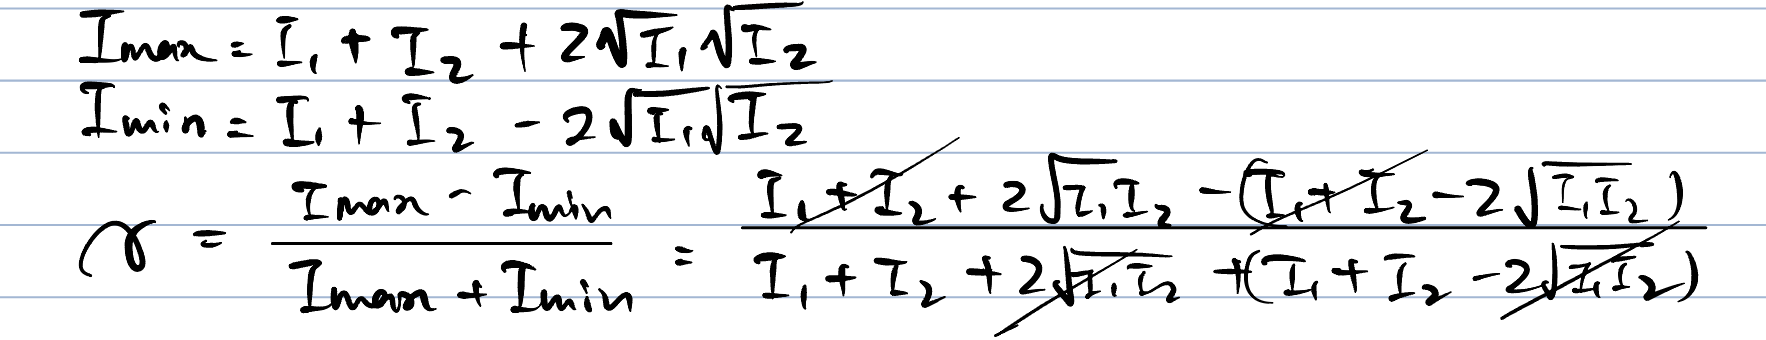 Imax = I₁ + I₂ + 2√I₁√I₂
Imin = I₁ + I₂ - 2√I₁√I₂
γ = (Imax - Imin)/(Imax + Imin) = (I₁ + I₂ + 2√I₁I₂ - (I₁ + I₂ - 2√I₁I₂))/(I₁ + I₂ + 2√I₁I₂ + (I₁ + I₂ - 2√I₁I₂))